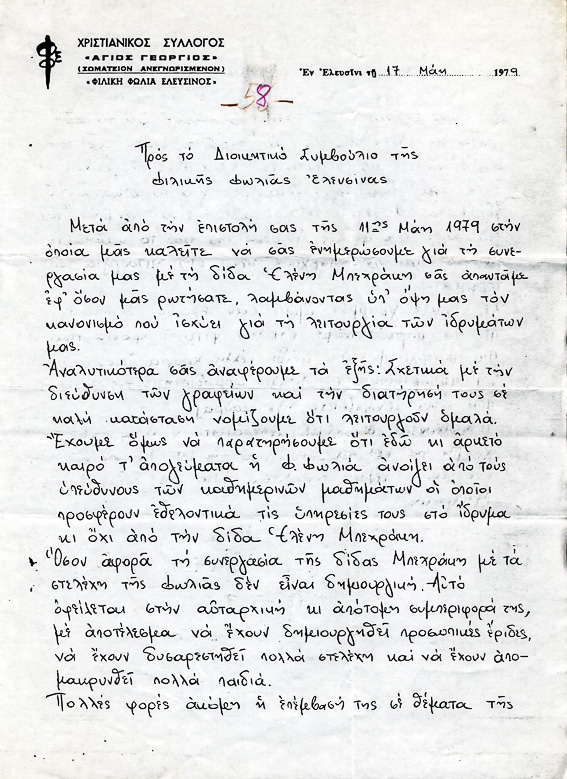 ΧΡΙΣΤΙΑΝΙΚΟΣ ΣΥΛΛΟΓΟΣ
«ΑΓΙΟΣ ΓΕΩΡΓΙΟΣ»
(ΣΩΜΑΤΕΙΟΝ ΑΝΕΓΝΩΡΙΣΜΕΝΟΝ)
«ΦΙΛΙΚΗ ΦΩΛΙΑ ΕΛΕΥΣΙΝΟΣ»
Ἐν Ἐλευσῖνι τῇ 17 Μάη 1979
-58-
Πρός τό Διοικητικό Συμβούλιο τῆς
Φιλικῆς Φωλιᾶς Ἐλευσίνας
Μετά ἀπό τήν ἐπιστολή σας τῆς 11ης Μάη 1979 στήν
ὁποία μᾶς καλεῖτε νά σᾶς ἐνημερώσουμε γιά τή συνε-
ργασία μας μέ τή δίδα Ἑλένη Μπεχράκη σᾶς ἀπαντᾶμε
ἐφ' ὅσον μᾶς ρωτήσατε, λαμβάνοντας ὑπ' ὄψη μας τόν
κανονισμό πού ἰσχύει γιά τή λειτουργία τῶν ἱδρυμάτων
μας.
Ἀναλυτικότερα σᾶς ἀναφέρουμε τά ἑξῆς: Σχετικά μέ τήν
διεύθυνση τῶν γραφείων καί τήν διατήρησή τους σέ
καλή κατάσταση νομίζουμε ὅτι λειτουργοῦν ὁμαλά.
Ἔχουμε ὅμως νά παρατηρήσουμε ὅτι ἐδῶ κι ἀρκετό
καιρό τ' ἀπογεύματα ἡ Φ. Φωλιά ἀνοίγει ἀπό τούς
ὑπεύθυνους τῶν καθημερινῶν μαθημάτων οἱ ὁποῖοι
προσφέρουν ἐθελοντικά τίς ὑπηρεσίες τους στό ἵδρυμα
κι ὄχι ἀπό τήν δίδα Ἑλένη Μπεχράκη.
Ὅσον ἀφορᾶ τή συνεργασία τῆς δίδας Μπεχράκη μέ τά
στελέχη τῆς Φωλιᾶς δέν εἶναι δημιουργική. Αὐτό
ὀφείλεται στήν αὐταρχική κι ἀπότομη συμπεριφορά της,
μέ ἀποτέλεσμα νά ἔχουν δημιουργηθεῖ προσωπικές ἔριδες,
νά ἔχουν δυσαρεστηθεῖ πολλά στελέχη καί νά ἔχουν ἀπο-
μακρυνθεῖ πολλά παιδιά.
Πολλές φορές ἀκόμη ἡ ἐπέμβασή της σέ θέματα τῆς